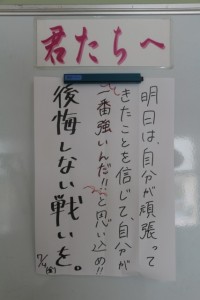 君たちへ
明日は、自分が頑張って
きたことを信じて、自分が
一番強いんだ!!と思い込め!!
後悔しない戦いを。